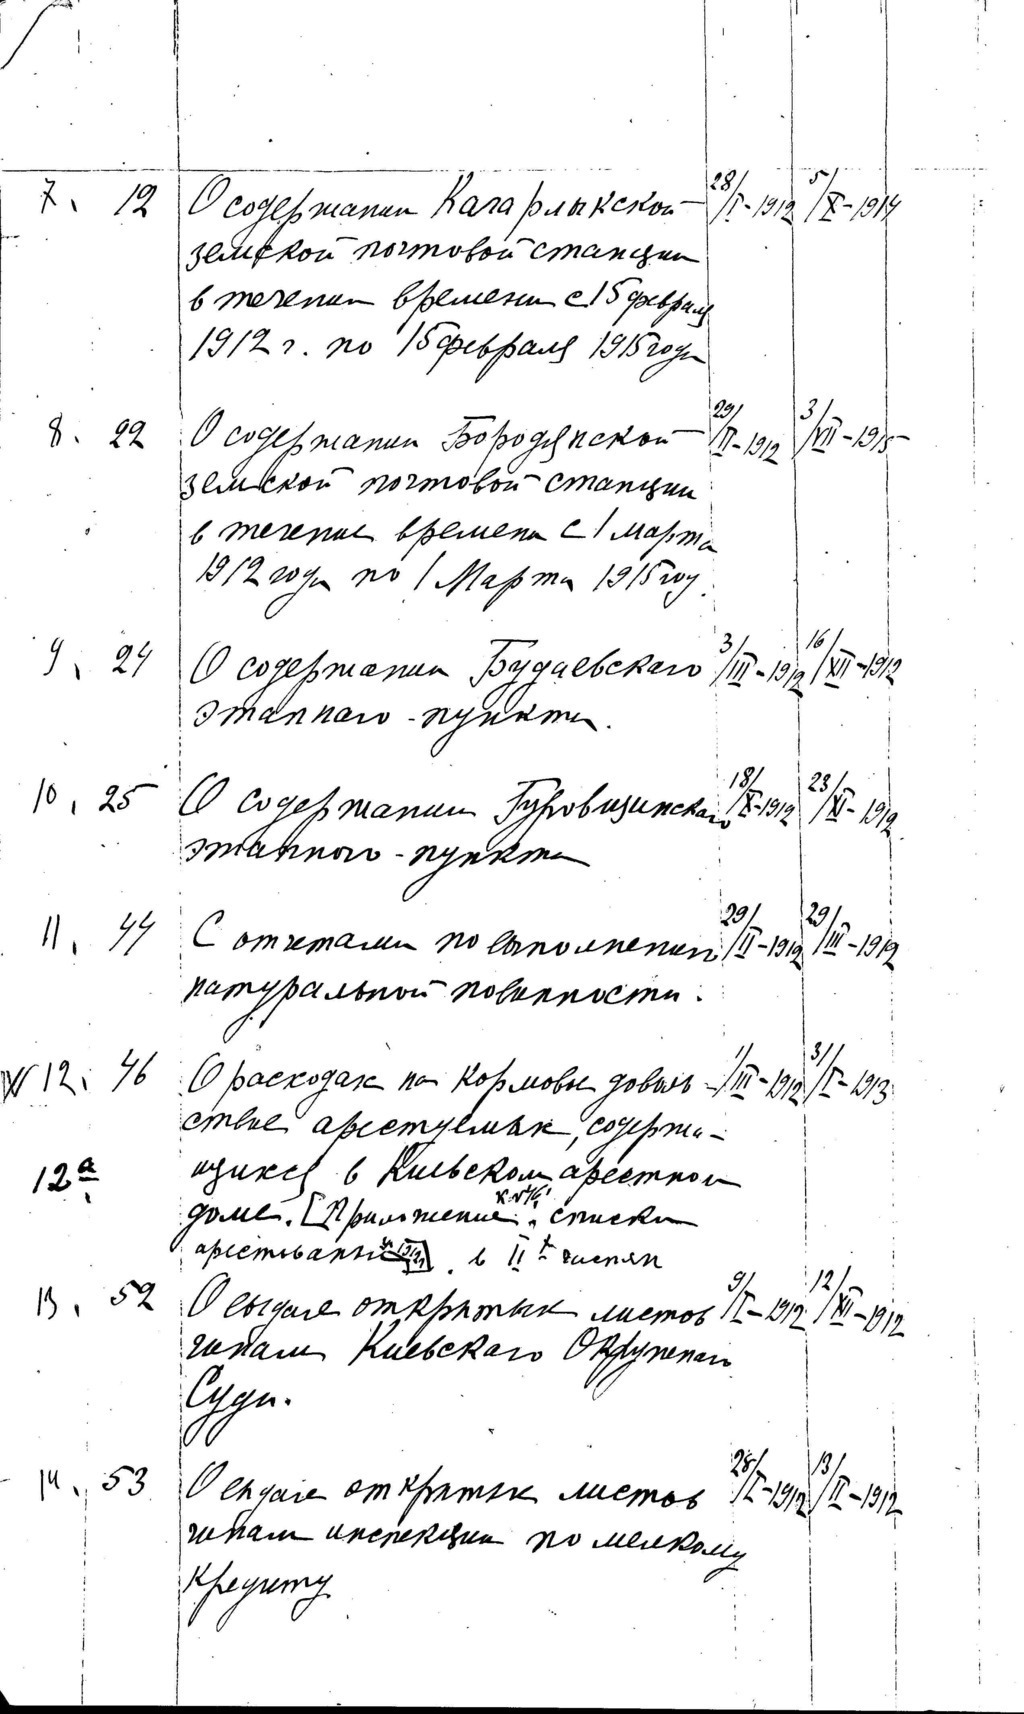 7. 12 О содержании Кагарлыкской 28/I-1912 5/X-1914
земской почтовой станции
в течении времени с 15 февраля
1912 г. по 15 февраля 1915 года
8. 22 О содержании Бородянской 29/II-1912 3/VII-1915
земской почтовой станции
в течение времени с 1 марта
1912 года по 1 Марта 1915 году.
9. 24 О содержании Будаевского 3/III-1912 16/XII-1912
этапного-пункта.
10. 25 О содержании Гуровщинского 18/X-1912 23/XI-1912
этапного-пункта
11. 44 С отчетами по выполнению 29/II-1912 29/III-1912
натуральной повинности.
12. 46 О расходах на кормовое доволь- 1/III-1912 31/I-1913
ствие арестуемых, содержа-
12а щихся в Киевском арестном
доме. [Приложение к №46: списки
арестованных] в II-х частях
13. 52 О выдаче открытых листов 9/I-1912 12/XII-1912
чинам Киевского Окружного
Суда.
14. 53 О выдаче открытых листов 28/I-1912 13/II-1912
чинам инспекции по мелкому
кредиту